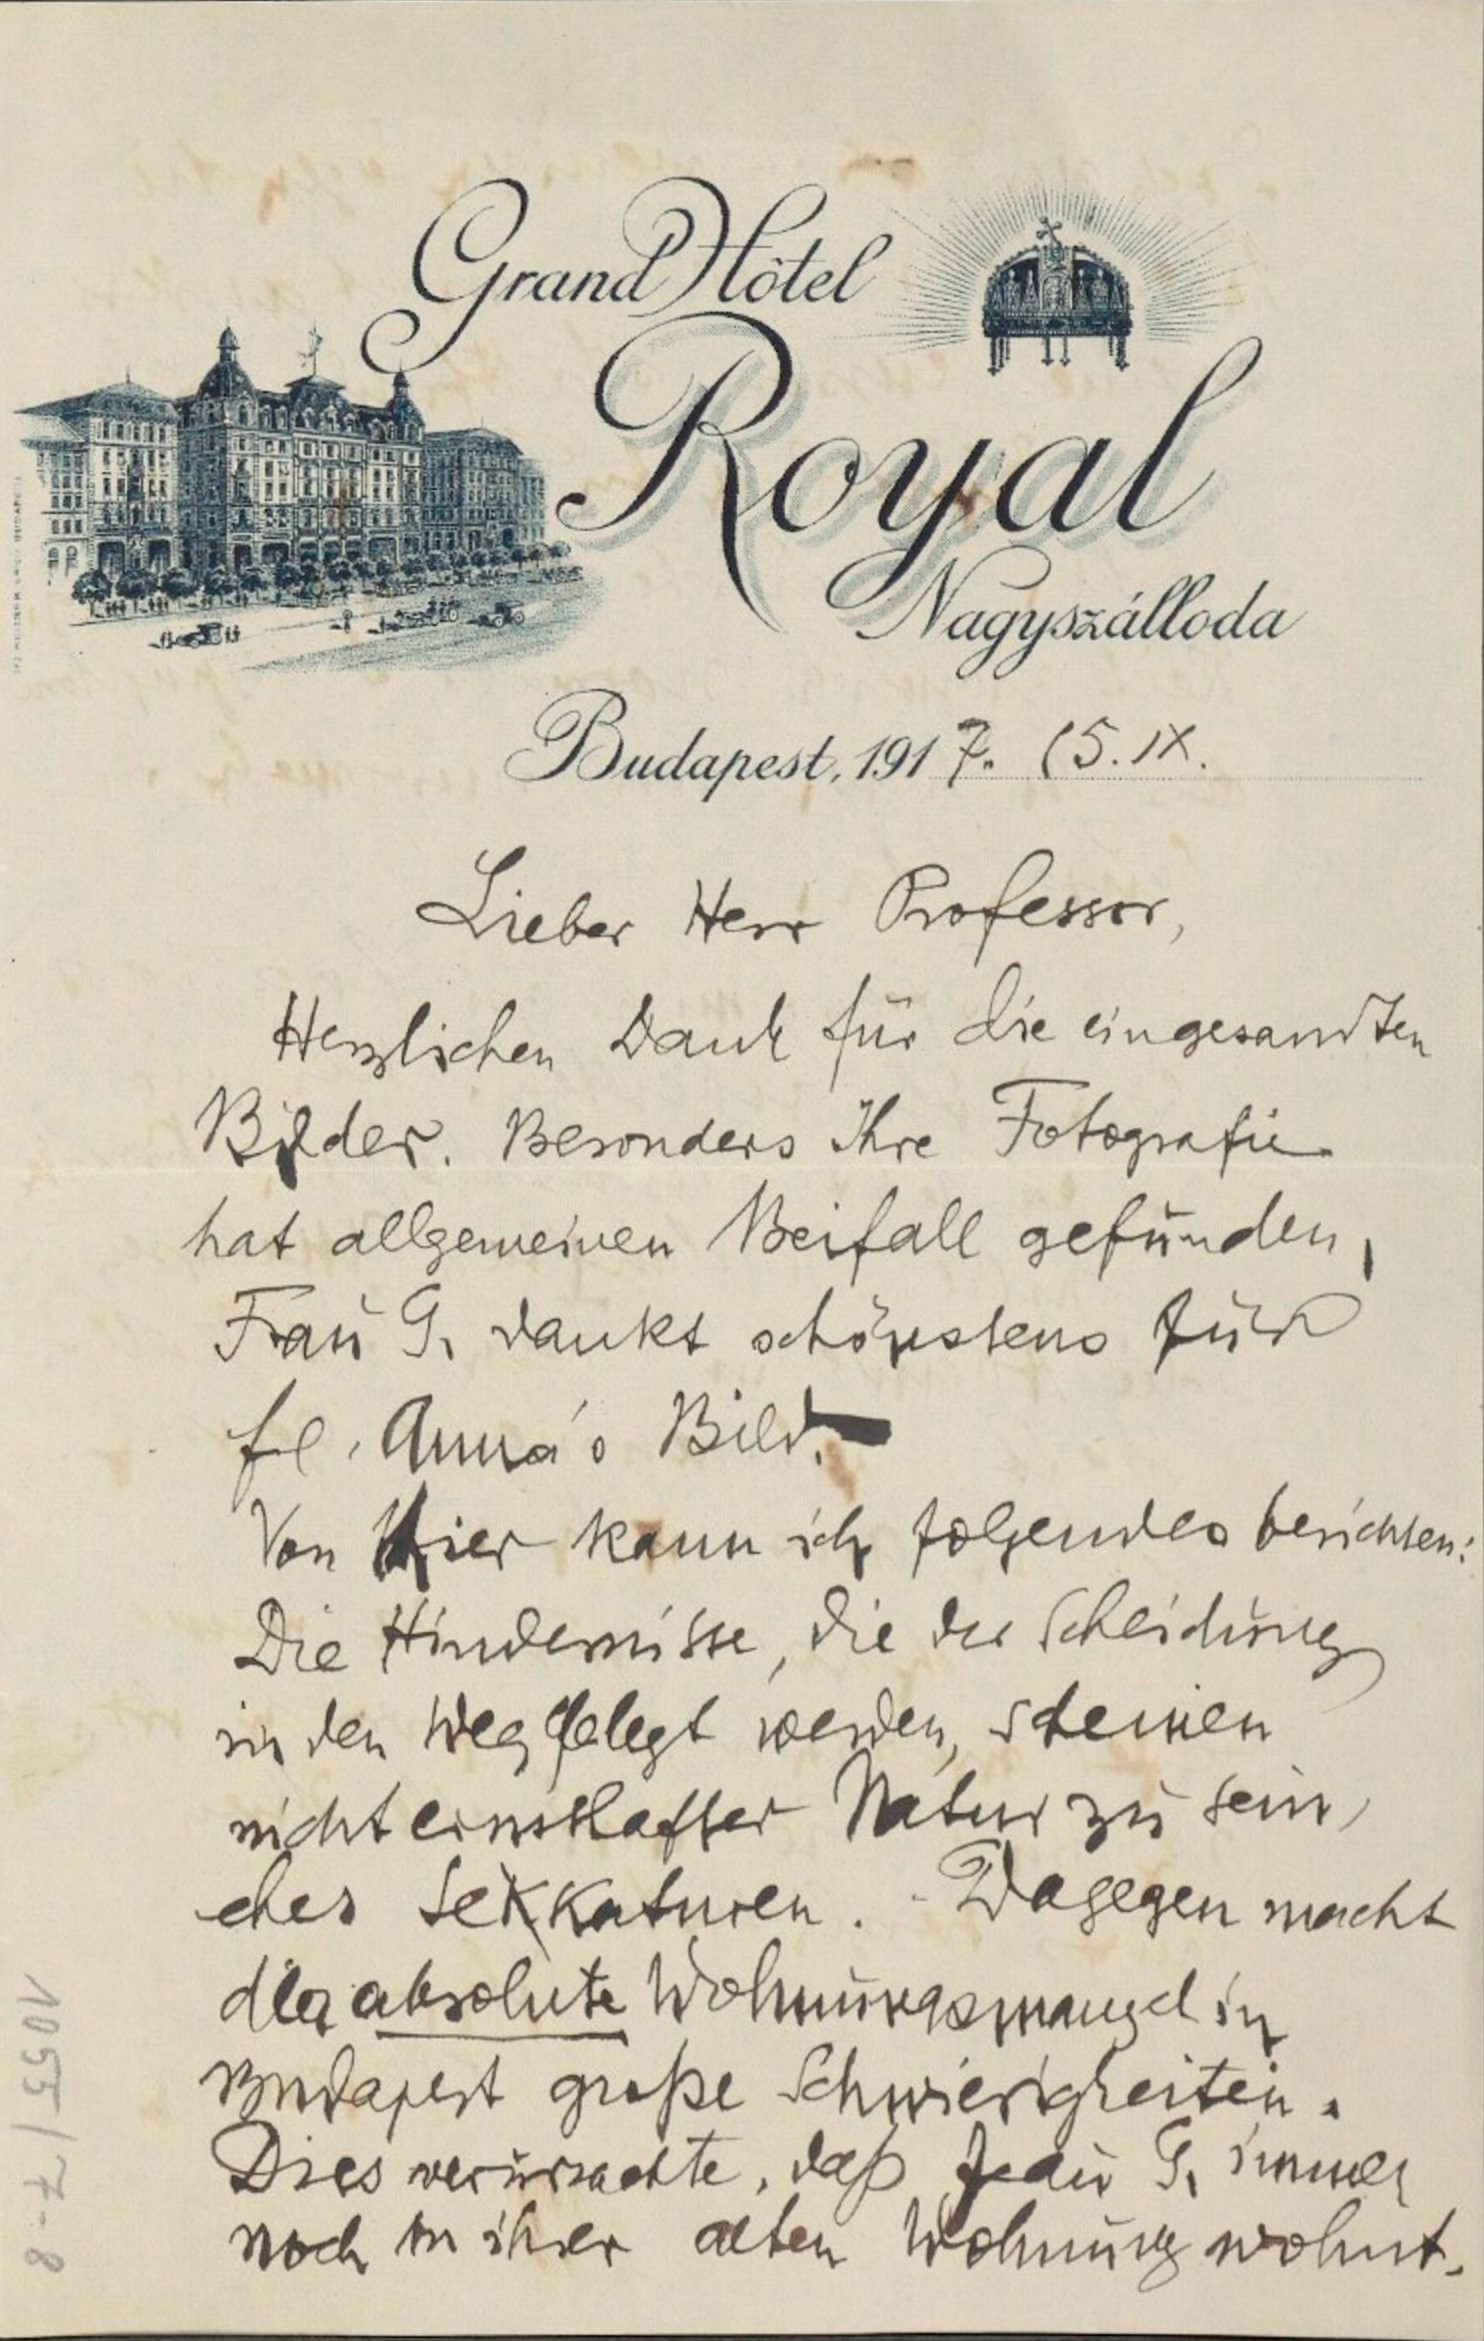 Grand Hôtel
Royal
Nagyszálloda
Budapest, 1917. 15. IX.
Lieber Herr Professor,
Herzlichen Dank für die eingesandten
Bilder. Besonders Ihre Fotografie
hat allgemeinen Beifall gefunden,
Frau G. dankt schönstens für
frl. Anna's Bild.
Von hier kann ich folgendes berichten:
Die Hindernisse, die der Scheidung
in den Weg gelegt werden, scheinen
nicht ernsthafter Natur zu sein,
eher Sekkaturen. - Dagegen macht
der absolute Wohnungsmangel in
Budapest große Schwierigkeiten.
Dies verursachte, daß Frau G. immer
noch in ihrer alten Wohnung wohnt.
1055/7-8